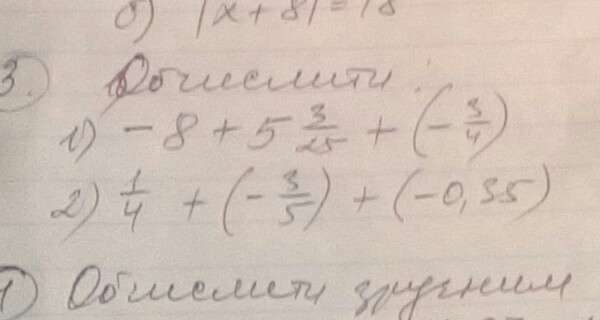 б) |x + 8| = 18
3. Обчислити:
1) - 8 + 5 3/25 + (- 3/4)
2) 1/4 + (- 3/5) + (-0,35)
1) Обчислити зручним